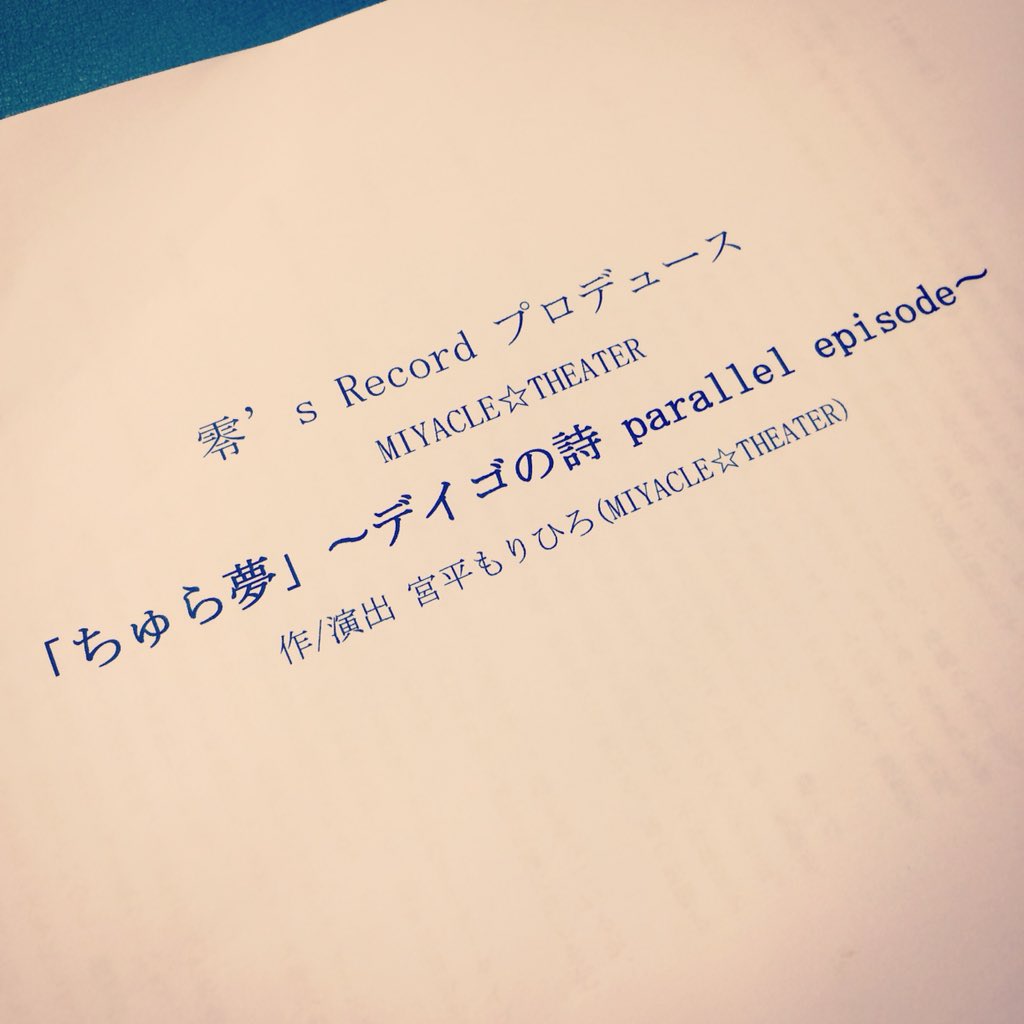 零’s Record プロデュース
MIYACLE☆THEATER
「ちゅら夢」～デイゴの詩 parallel episode～
作/演出 宮平もりひろ(MIYACLE☆THEATER)